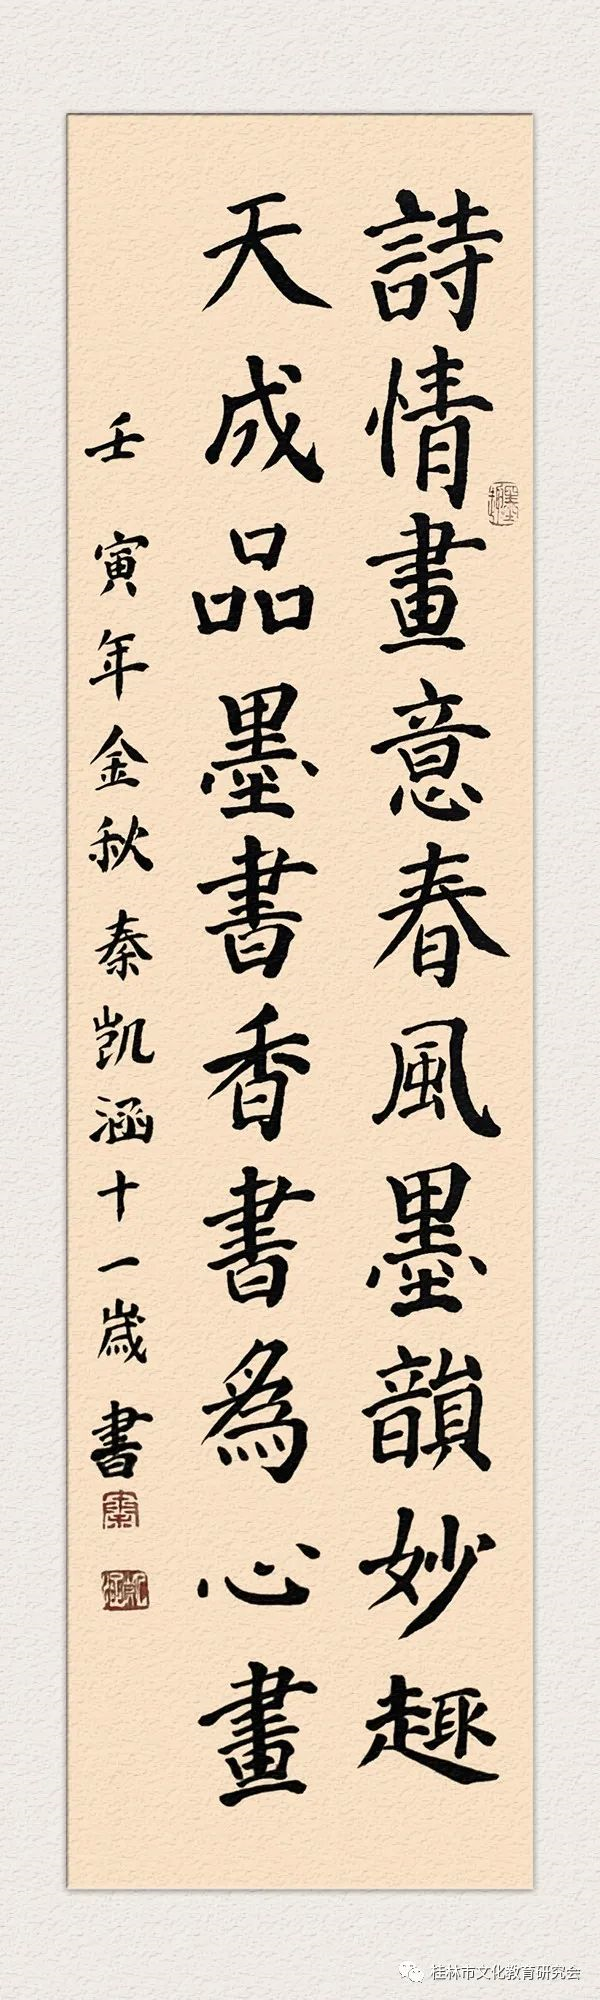 詩情畫意春風墨韻妙趣
天成品墨書香書為心畫
壬寅年金秋秦凱涵十一歲書
桂林市文化教育研究会